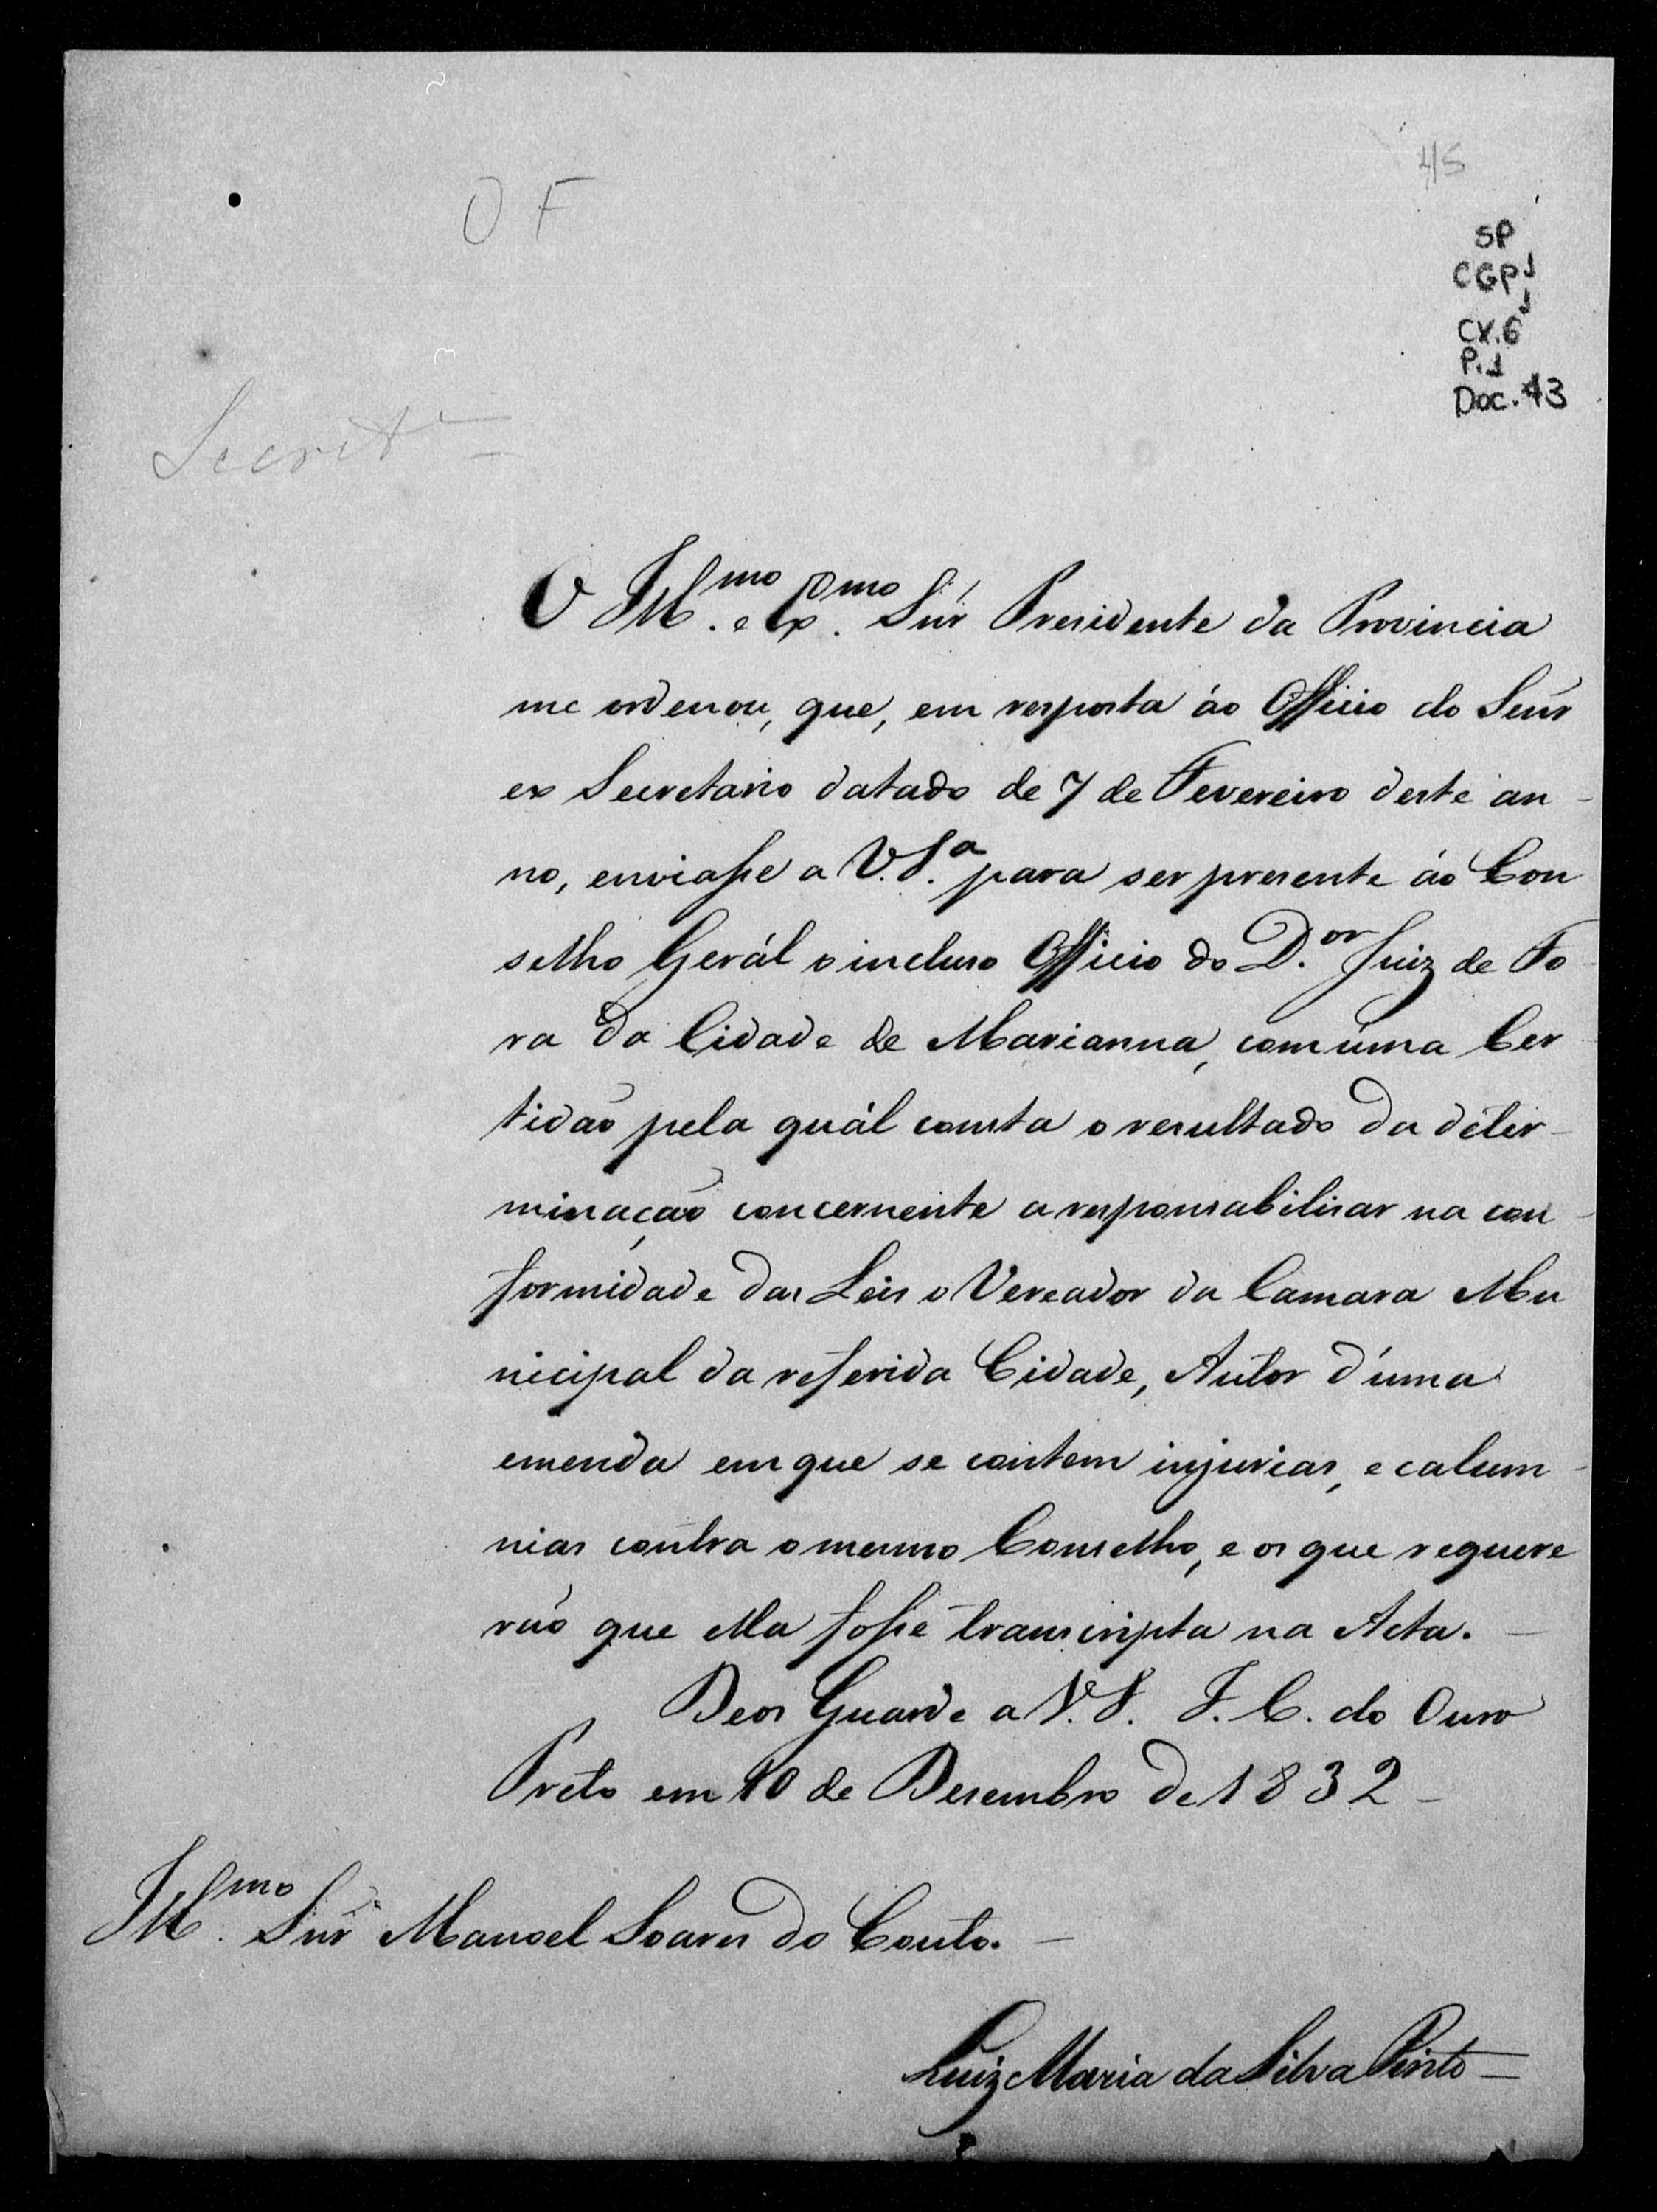 45
OF
SP
CGP1
CX.6
P.1
Doc. 43
Secret.ª
O Ill.mo e Ex.mo Snr̃ Presidente da Provincia
me ordenou, que, em resposta áo Officio do Senr̃
ex Secretario datado de 7 de Fevereiro deste an-
no, enviasse a V.S.ª para ser presente áo Con
selho Gerál o incluso Officio do D.or Juiz de Fo
ra da Cidade de Marianna, com úma Cer
tidão pela quál consta o resultado da deter-
minação concernente a responsabilisar na con-
formidade das Leis o Vereador da Camara Mu
nicipal da referida Cidade, Autor d'uma
emenda em que se contem injurias, e calum-
nias contra o mesmo Conselho, e os que requere
rão que ella fosse transcripta na Acta. —
Deos Guarde a V.S. I. C. do Ouro
Preto em 10 de Desembro de 1832 -
Ill.mo Snr̃ Manoel Soares do Couto. —
Luiz Maria da Silva Pinto —